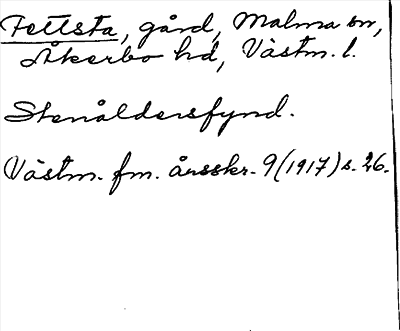 Fettsta, gård, Malma sn,
Åkerbo hd, Västm. l.
Stenåldersfynd.
Västm. fm. årsskr. 9 (1917) s. 26.